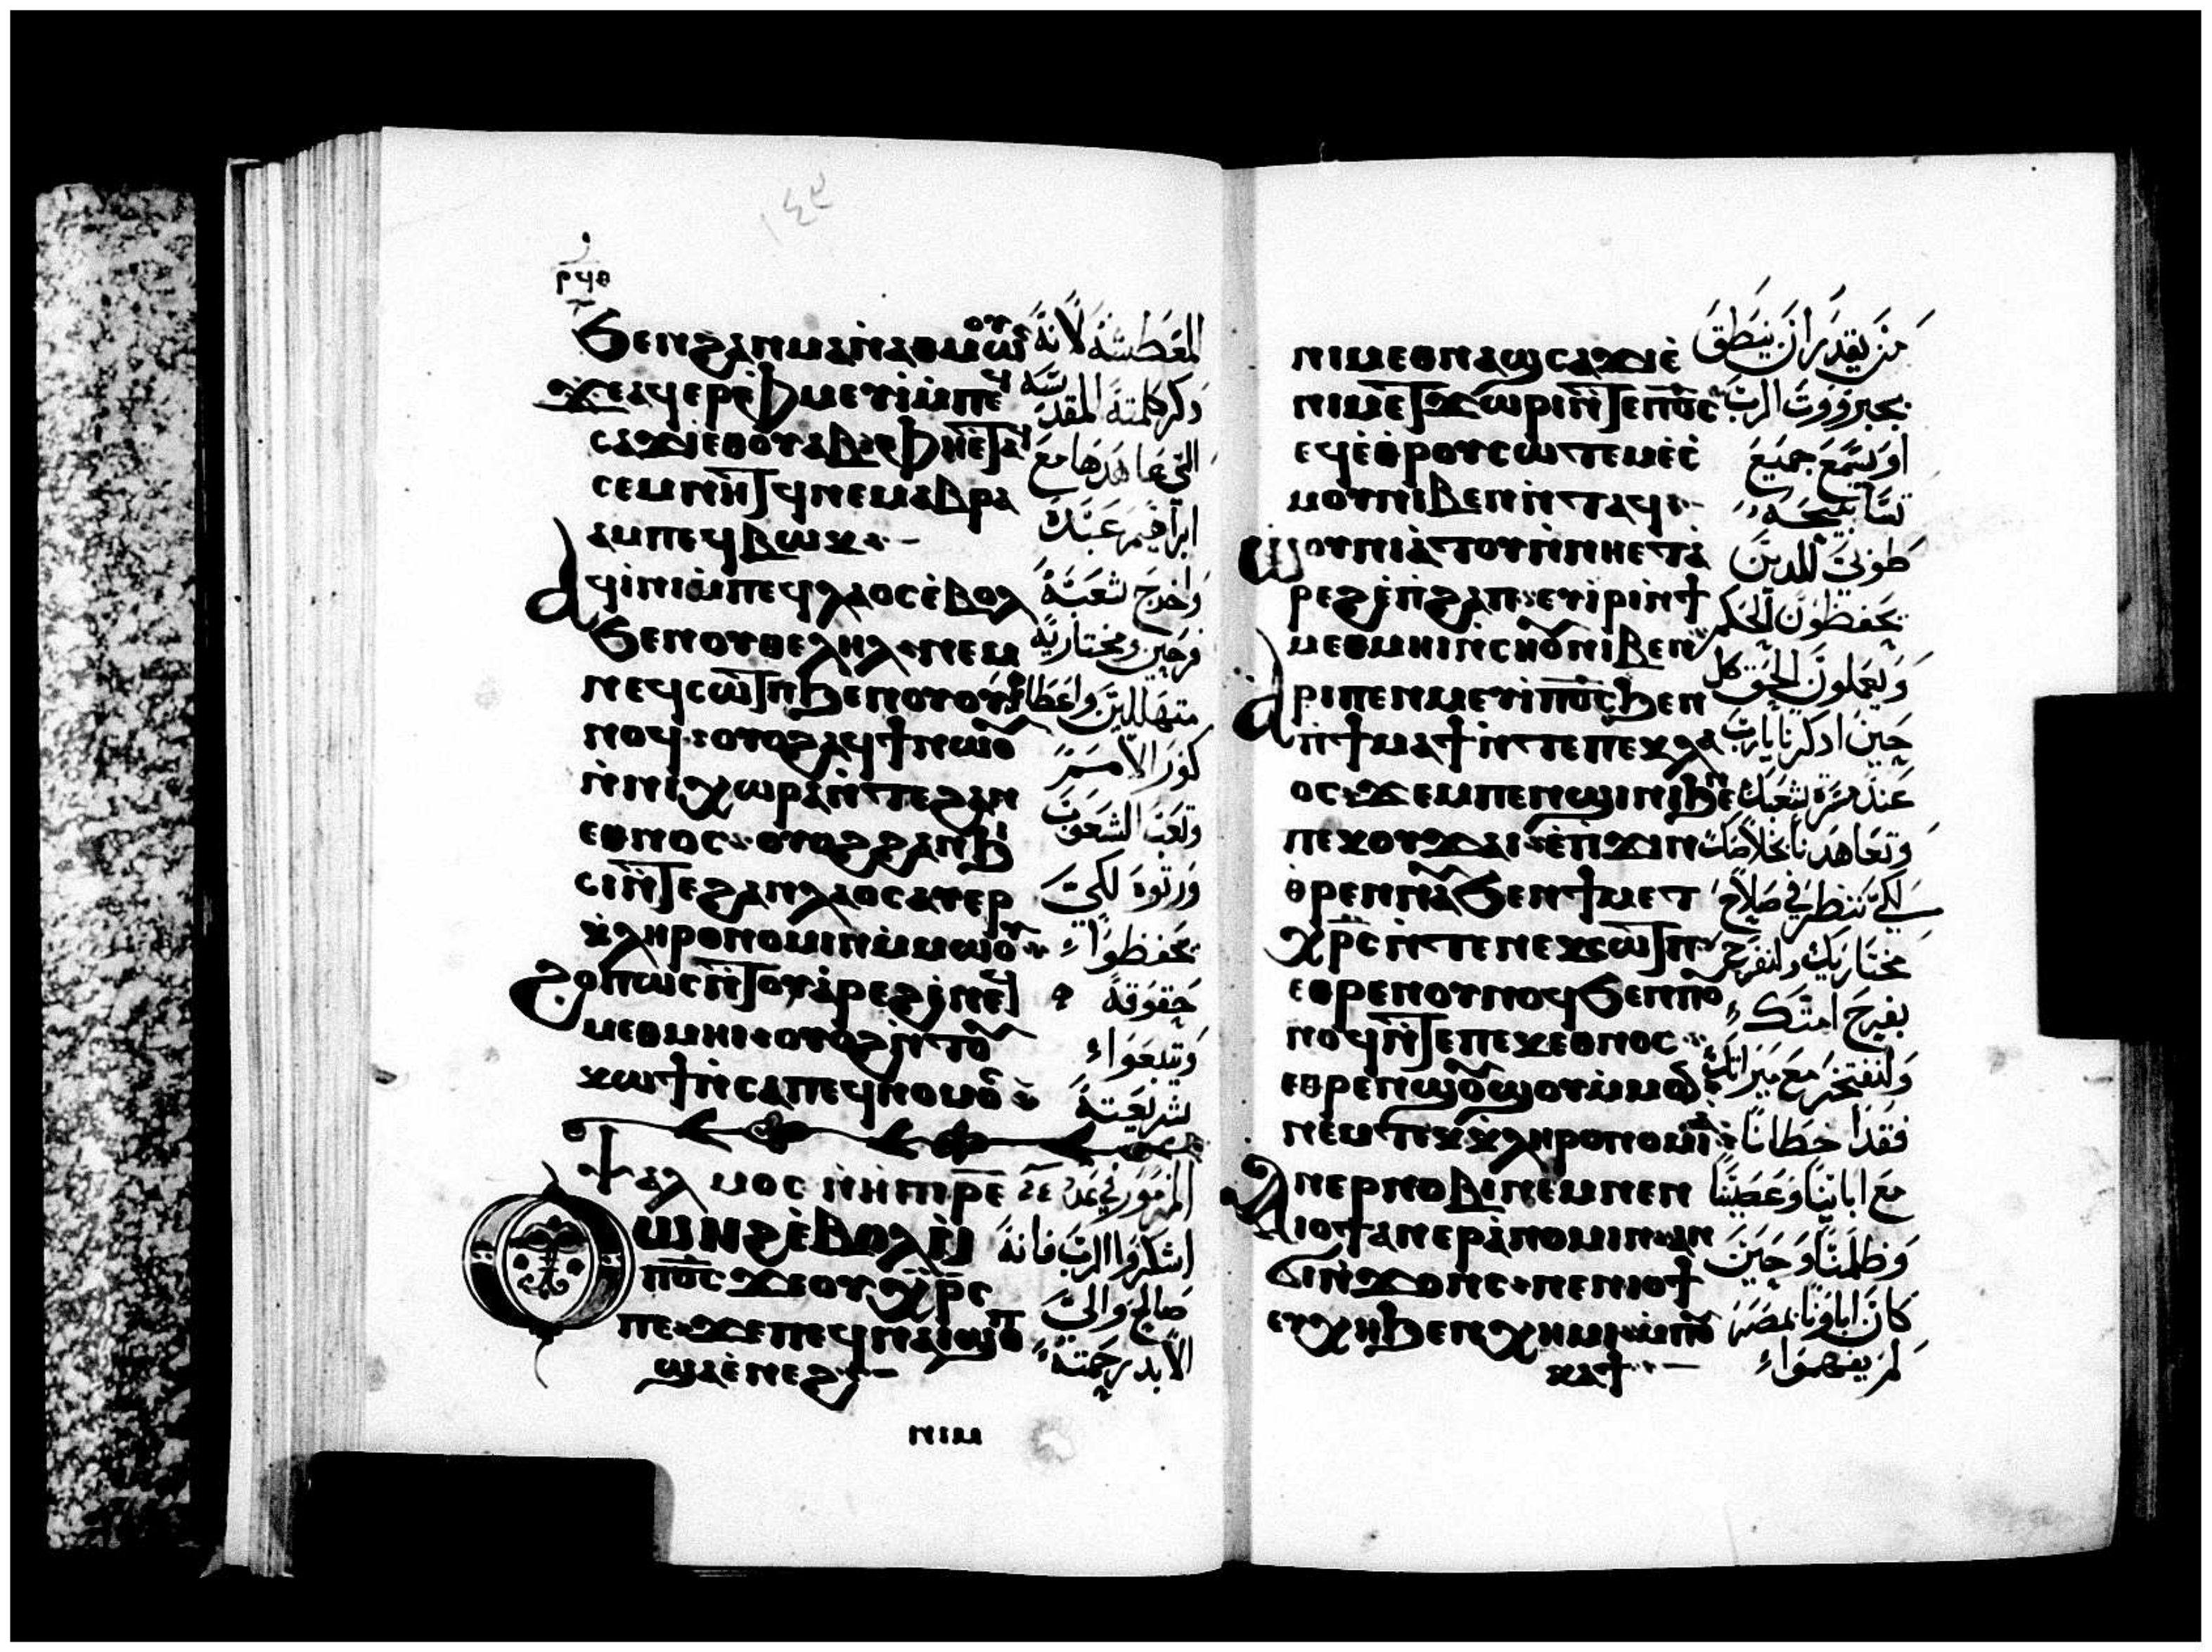 ١٤٩
ⲣϥⲑ
ϧⲉⲛϩⲁⲛⲙⲁⲛ̀ⲁⲑⲙⲱⲟⲩ
ϫⲉⲁϥⲉⲣⲫ̀ⲙⲉⲩⲓ̀ⲙ̀ⲡⲉϥ
ⲥⲁϫⲓⲉⲑⲟⲩⲁⲃ ⲫⲏⲉ̀ⲧⲁϥ
ⲥⲉⲙⲛⲏⲧϥ ⲛⲉⲙⲁⲃⲣⲁ
ⲁⲙⲡⲉϥⲃⲱⲕ
ⲁϥⲓ̀ⲛⲓⲙ̀ⲡⲉϥⲗⲁⲟⲥⲉ̀ⲃⲟⲗ
ϧⲉⲛⲟⲩⲑⲉⲗⲏⲗ ⲛⲉⲙ
ⲛⲉϥⲥⲱⲧⲡϧⲉⲛⲟⲩⲟⲩ
ⲛⲟϥ ⲟⲩⲟϩⲁϥϯⲛⲱⲟⲩ
ⲛ̀ⲛⲓⲭⲱⲣⲁⲛ̀ⲧⲉϩⲁⲛ
ⲉⲑⲛⲟⲥ ⲟⲩⲟϩϩⲁⲛϧⲓ
ⲥⲓⲛ̀ⲧⲉϩⲁⲛⲗⲁⲟⲥⲁⲩⲉⲣ
ⲕⲗⲏⲣⲟⲛⲟⲙⲓⲛⲙ̀ⲙⲱⲟⲩ
ϩⲟⲡⲱⲥⲛ̀ⲧⲟⲩⲁ̀ⲣⲉϩⲛⲉϥ
ⲙⲉⲑⲙⲏⲓ ⲟⲩⲟϩⲛ̀ⲧⲟⲩ
ⲕⲱϯⲛ̀ⲥⲁⲡⲉϥⲛⲟⲙⲟⲥ
ⲯⲁⲗⲙⲟⲥ ⲣⲉ
ⲟⲩⲱⲛϩⲉ̀ⲃⲟⲗⲙ̀
ⲡ︦ⲟ︦ⲥ︦ϫⲉⲟⲩⲭ︦ⲣ︦ⲥ︦
ⲡⲉ ϫⲉⲡⲉϥⲛⲁⲓϣⲟⲡ
ϣⲁⲉ̀ⲛⲉϩ
ⲛⲓⲙ
المعطشة لانه
ذكر كلمته المقدسه
التى عاهدها مع
ابراهيم عبده
واخرج شعبه
فرحين ومختاريه
متهللين واعطاهم
كور الامم
وتعب الشعوب
ورثوه لكى
يحفظوا
حقوقه
ويتبعوا
شريعته
اشكروا الرب فانه
صالح والى
الابد رحمته
ⲛⲓⲙⲉⲑⲛⲁϣⲥⲁϫⲓⲉ̀
ⲛⲓⲙⲉⲧϫⲱⲣⲓⲛ̀ⲧⲉⲡ︦ⲟ︦ⲥ︦
ⲉϥⲉ̀ⲑⲣⲟⲩⲥⲱⲧⲉⲙⲉ̀ⲥ̀
ⲙⲟⲩⲛⲓⲃⲉⲛⲛ̀ⲧⲁϥ
ⲱⲟⲩⲛⲓⲁ̀ⲧⲟⲩⲛ̀ⲛⲏⲉⲧⲁ̀
ⲣⲉϩⲉ̀ⲡϩⲁⲡ ⲉⲧⲓ̀ⲣⲓⲛ̀ϯ
ⲙⲉⲑⲙⲏⲓⲛ̀ⲥⲏⲟⲩⲛⲓⲃⲉⲛ
ⲁⲣⲓⲡⲉⲛⲙⲉⲩⲓ̀ⲡ︦ⲟ︦ⲥ︦ϧⲉⲛ
ⲡ̀ϯⲙⲁϯⲛ̀ⲧⲉⲡⲉⲕⲗⲁ
ⲟⲥ ϫⲉⲙⲡⲉⲛϣⲓⲛⲓϧⲉⲛ
ⲡⲉⲕⲟⲩϫⲁⲓ ⲉ̀ⲡϫⲓⲛ
ⲑⲣⲉⲛⲛⲁⲩϧⲉⲛϯⲙⲉⲧ
ⲭ︦ⲣ︦ⲥ︦ⲛ̀ⲧⲉⲛⲉⲕⲥⲱⲧⲡ
ⲉⲑⲣⲉⲛⲟⲩⲛⲟϥϧⲉⲛⲡⲟⲩ
ⲛⲟϥⲛ̀ⲧⲉⲡⲉⲕⲉⲑⲛⲟⲥ
ⲉⲑⲣⲉⲛϣⲟⲩϣⲟⲩⲙ̀ⲙⲟⲛ
ⲛⲉⲙⲧⲉⲕⲕⲗⲏⲣⲟⲛⲟⲙⲓⲁ̀
ⲁⲛⲉⲣⲛⲟⲃⲓⲛⲉⲙⲛⲉⲛ
ⲓⲟϯⲁⲛⲉⲣⲁ̀ⲛⲟⲙⲓⲛ ⲁⲛ
ϭⲓⲛ̀ϫⲟⲛⲥ ⲛⲉⲛⲓⲟϯ
ⲉⲩⲭⲏϧⲉⲛⲭⲏⲙⲓ ⲙⲡⲟⲩ
ⲕⲁϯ
من يقدر ان ينطق
بجبروت الرب
او يسمع جميع
تسابيحه
طوبى للذين
يحفظون الحكم
ويعملون الحق كل
حين اذكرنا يا رب
عند مسرة شعبك
وتعاهدنا بخلاصك
لكى ننظر فى صلاح
مختاريك ولنفرح
بفرح امتك
ولنفتخر مع ميراثك
فقد اخطانا
مع ابائنا وعصينا
وظلمنا وحين
كان اباونا بمصر
لم يفهموا